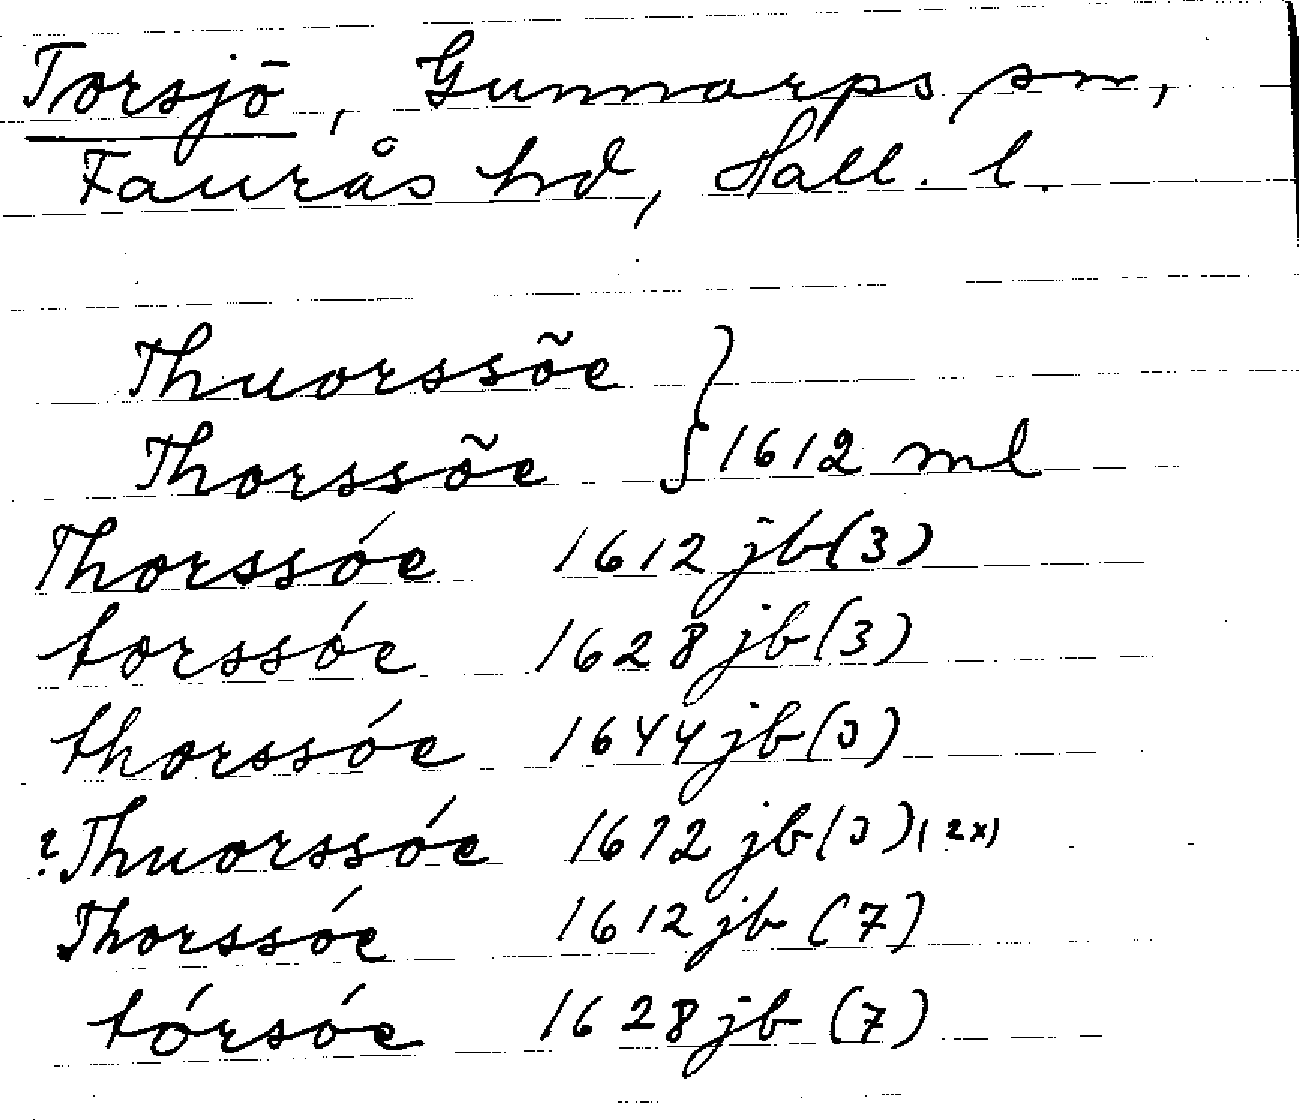 Torsjö, Gunnarps sn,
Faurås hd, Hall. l.
Thuorssõe }
Thorssõe } 1612 ml
Thorssóe 1612 jb (3)
torssóe 1628 jb (3)
thorssóe 1644 jb (3)
? Thuorssóe 1612 jb (3) (2x)
Thorssóe 1612 jb (7)
tórsóe 1628 jb (7)